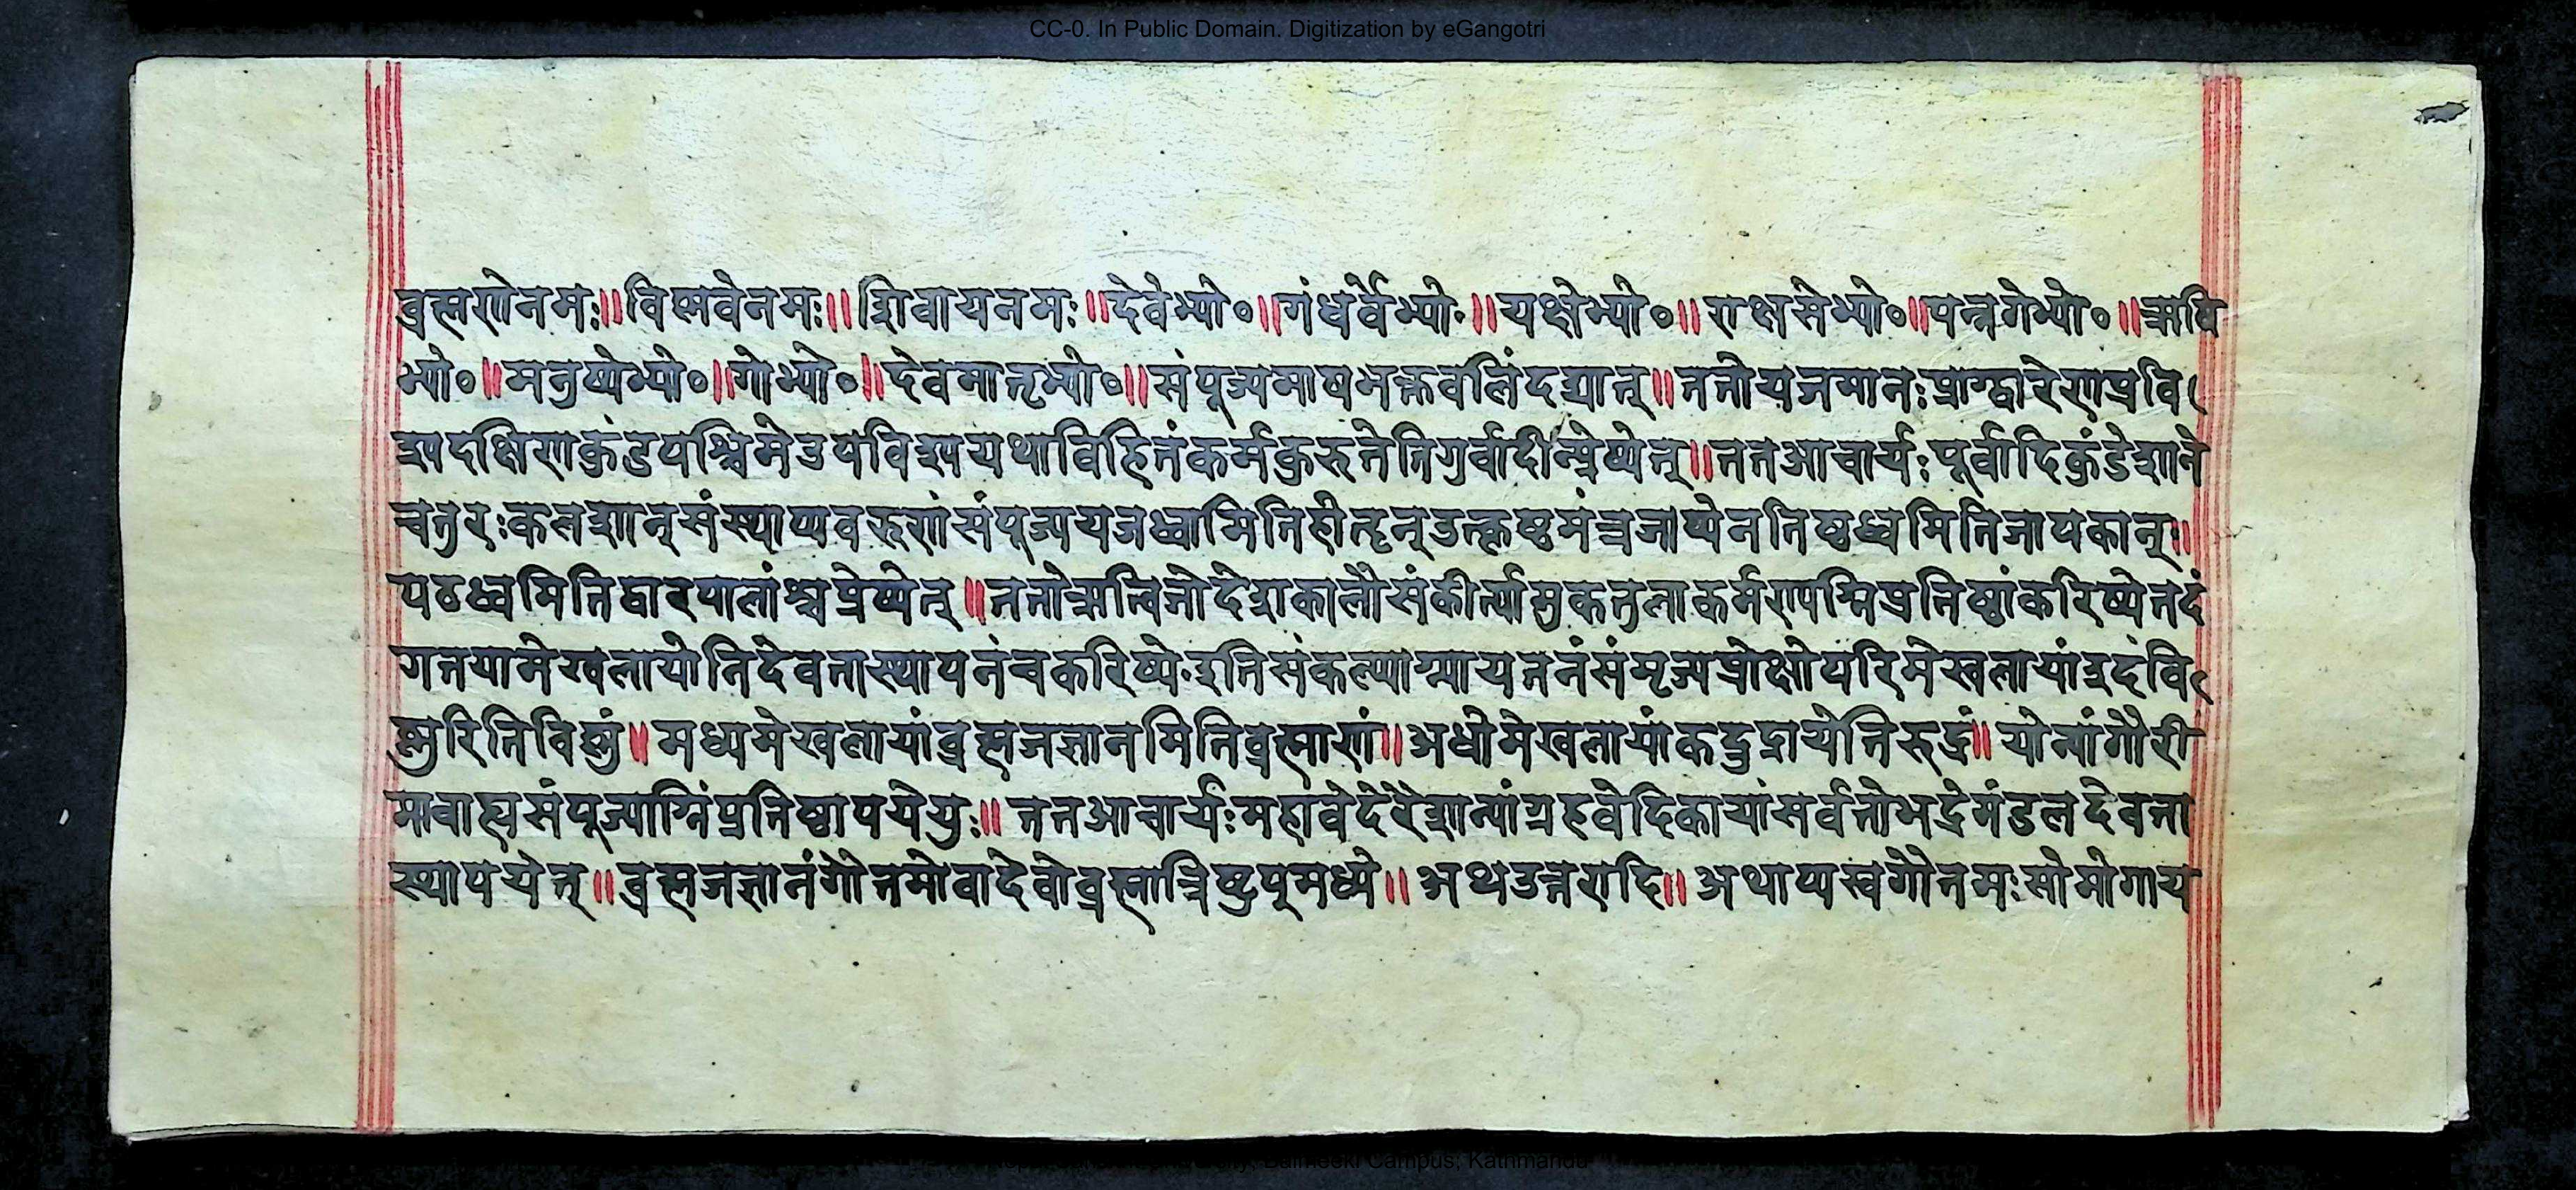 CC-0. In Public Domain. Digitization by eGangotri
ब्रह्मणेनमः॥विष्णवेनमः॥शिवायनमः॥देवेभ्यो०॥गंधर्वेभ्यो॰॥यक्षेभ्यो०॥राक्षसेभ्यो०॥पन्नगेभ्यो०॥ऋषि
भ्यो०॥मनुष्येभ्यो०॥गोभ्यो०॥देवमातृभ्यो०॥संपूज्यमाषभक्तवलिंदद्यात्॥ततोयजमानःप्राग्द्वारेणप्रवि
श्यदक्षिणकुंडपश्चिमेउपविश्ययथाविहितंकर्मकुरुतेतिगुर्वादीन्प्रेष्येत्॥ततआचार्यःपूर्वादिकुंडेशाने
चतुरःकलशान्संस्थाप्यवरूणंसंपूज्ययजध्वामितिहोतॄन्उत्कृष्टमंत्रजाप्येनतिष्ठध्वमितिजापकान्॥
पठध्वमितिद्वारपालांश्चप्रेष्येत्॥ततोऋत्विजोदेशकालौसंकीर्त्यामुकतुलाकर्मण्यग्निप्रतिष्ठांकरिष्येतदं
गतयामेखलायोनिदेवतास्थापनंचकरिष्ये॰इतिसंकल्प्याग्न्यायतनंसंमृज्यप्रोक्ष्योपरिमेखलायांइदंवि
ष्णुरितिविष्णुं॥मध्यमेखलायांब्रह्मजज्ञानमितिब्रह्माणं॥अधोमेखलायांकद्रुद्रायेतिरुद्रं॥योन्यांगौरी
मावाह्यसंपूज्याग्निंप्रतिष्ठापयेयुः॥ततआचार्यःमहावेदेरैशान्यांग्रहवेदिकायांसर्वतोभद्रेमंडलदेवता
स्थापयेत्॥ब्रह्मजज्ञानंगोतमोवादेवोब्रह्मात्रिष्टुप्मध्ये॥अथउत्तरादि॥अथाप्यस्वगोतमःसोमोगाय
Campus, Kathmandu